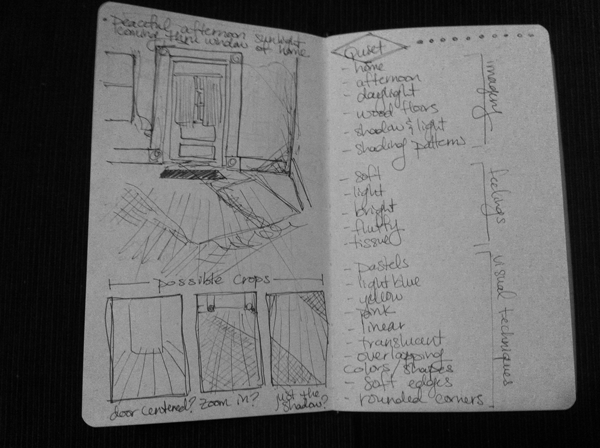 • Peaceful afternoon sunlight
coming thru window of home
possible crops
door centered?
Zoom in?
just the
shadow?
Quiet
- home
- afternoon
- daylight
- wood floors
- shadow & light
- shading patterns
imagery
- soft
- light
- bright
- fluffy
- tissuey
feelings
- pastels
- light blue
- yellow
- pink
- linear
- translucent
- overlapping
colors/shapes
- soft edges
- rounded corners
visual techniques